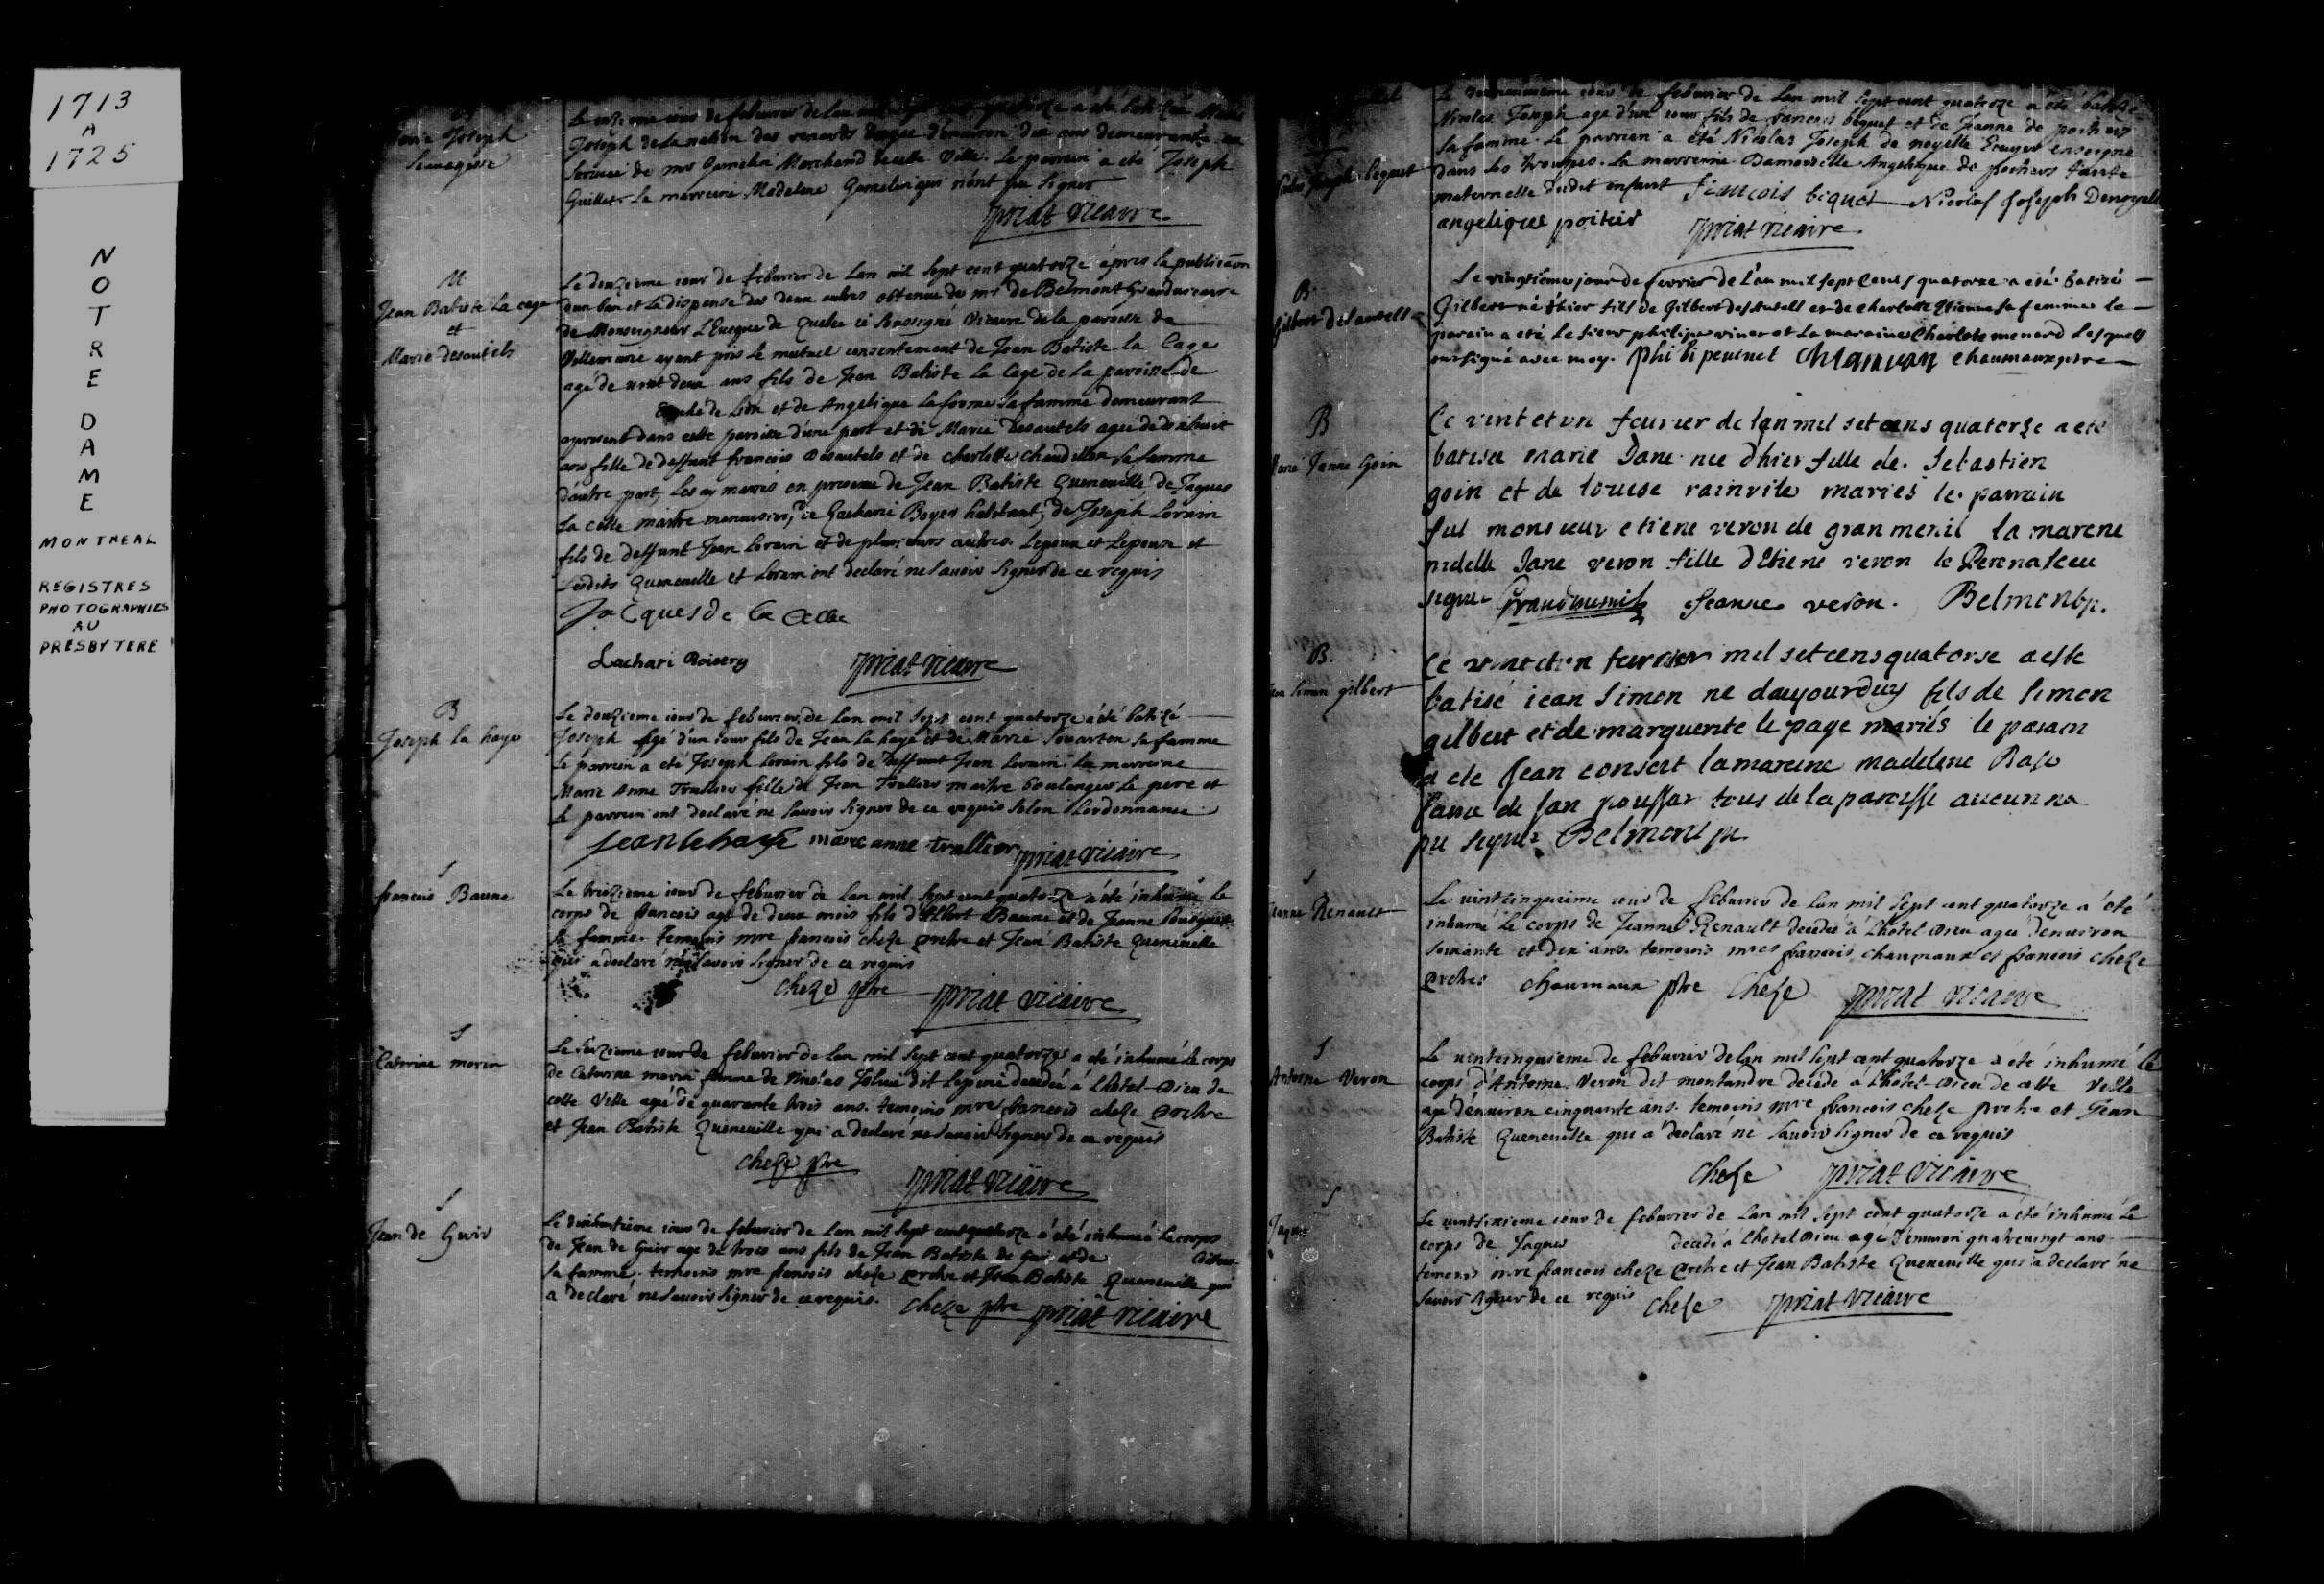 1713
A
1725
NOTRE DAME
MONTREAL
REGISTRES
PHOTOGRAPHIES
AU
PRESBYTERE
Joseph
Sauvagesse
Joseph de la nation des renards agée d'environ dix ans demeurante au
service de mr Gamelin Marchand de cette Ville. Le parrein a été Joseph
Guillet. La marreine Madelene Gamelin qui n'ont pu signer
priat vicaire
M
Jean Batiste La cage
et
Marie desautels
Le douzieme iour de feburier de Lan mil sept cent quatorze après la publication
d'un ban et la dispense des deux autres obtenue de mr de Belmont Grandvicaire
de Monseigneur L'Eveque de Quebec ie soussigné Vicaire de la paroisse de
Villemarie ayant pris le mutuel consentement de Jean Batiste la Cage
agé de vint deux ans fils de Jean Batiste La Cage de la paroisse de
de Lion et de Angelique la forme sa famme demeurant
apresent dans cette paroisse d'une part et de Marie desautels agée de dixhuit
ans fille de deffunt francois desautels et de charlotte chaudillon sa famme
d'autre part, Les ay mariés en presence de Jean Batiste Queneuille, de Jaques
La celle maitre menuisier, de Zacharie Boyer habitant, de Joseph Lorain
fils de deffunt Jean Lorain et de plusieurs autres. Lepoux et Lepouse et
Lesdits Queneuille et Lorain ont declaré ne savoir signer de ce requis
Jacques de la Celle
priat vicaire
B
Joseph la haye
Le douzieme iour de feburier de Lan mil sept cent quatorze a été batizé
Joseph agé d'un iour fils de Jean la haye et de Marie Souarten sa famme
Le parrein a été Joseph Lorain fils de deffunt Jean Lorain. La marreine
Marie Anne Trullier fille de Jean Trullier maitre boulanger le pere et
Le parrein ont declaré ne savoir signer de ce requis selon Lordonnance
Jean lehays marie anne trullier priat vicaire
S
francois Baune
Le treizieme iour de feburier de Lan mil sept cent quatorze a été inhumé le
corps de francois agé de deux mois fils d'Albert Baune et de Jeanne
sa famme. temoins mre francois cheze pretre et Jean Batiste Queneuille
qui a declaré ne savoir signer de ce requis
cheze ptre priat vicaire
S
Caterine morin
Le seizieme iour de feburier de Lan mil sept cent quatorze a été inhumé le corps
de Caterine morin famme de Nicolas Joluie dit Lepine decedée à Lhotel-Dieu de
cette Ville agée de quarante trois ans. temoins mre francois cheze pretre
et Jean Batiste Queneuille qui a declaré ne savoir signer de ce requis
cheze ptre priat vicaire
S
Jean de Guir
Le dixhuitieme iour de feburier de Lan mil sept cent quatorze a été inhumé le corps
de Jean de Guir agé de trois ans fils de Jean Batiste de Guir et de
sa famme. temoins mre francois cheze pretre et Jean Batiste Queneuille qui
a declaré ne savoir signer de ce requis. cheze ptre priat vicaire
Joseph bequet
iour de feburier de Lan mil sept cent quatorze a été batizé
Nicolas Joseph agé d'un iour fils de francois bequet et de Jeanne de
sa famme. Le parrein a été Nicolas Joseph de noyelle Ecuyer enseigne
dans les troupes. La marreine Damoiselle Angelique de poitiers tante
maternelle dudit enfant francois biquet Nicolas Joseph Denoyelle
angelique poitier priat vicaire
B
Gilbert desautells
Le vingtiéme jour de fevrier de l'an mil sept cents quatorze a esté batizé
Gilbert né d'hier fils de Gilbert desautells et de charlotte Etienne sa femme le
parain a eté le sieur philipe vinet et La maraine Charlote menard Lesquells
ont signé avec moy. phi li pe vinet chaumaux ptre
B
Marie Janne Goin
Ce vint et vn feurier de lan mil set cens quatorze a eté
batisee marie Jane nee d'hier fille de Sebastien
goin et de louise rainvile mariés le parrain
fut monsieur etiene veron de gran menil la marene
mdelle Jane veron fille d'Etiene veron
signer Grandmenil Jeanne veron. Belmont p.
B.
Jean Simon gilbert
Ce vint et vn fevrier mil set cens quatorse a este
batisé iean Simon ne daujourduy fils de Simon
gilbert et de marguerite le page mariés le parain
a ete Jean consert la mareine madelene
fame de Jan poussar tous de la paroisse aucun na
pu signer Belmont p
S
Jeanne Renault
Le vintcinquieme iour de feburier de Lan mil sept cent quatorze a été
inhumé le corps de Jeanne Renault decedée à Lhotel-Dieu agée d'environ
soixante et dix ans. temoins mres francois chaumaux et francois cheze
pretres chaumaux ptre Cheze priat vicaire
S
Antoine Veron
Le vintcinquieme de feburier de Lan mil sept cent quatorze a été inhumé le
corps d'Antoine Veron dit montandre decédé à Lhotel-Dieu de cette Ville
agé d'environ cinquante ans. temoins mre francois cheze pretre et Jean
Batiste Queneuille qui a declaré ne savoir signer de ce requis
cheze priat vicaire
S
Jaques
Le vintsixieme iour de feburier de Lan mil sept cent quatorze a été inhumé Le
corps de Jaques decedé à Lhotel Dieu agé d'environ quatrevingt ans
temoins mre francois cheze pretre et Jean Batiste Queneuille qui a declaré ne
savoir signer de ce requis cheze priat vicaire